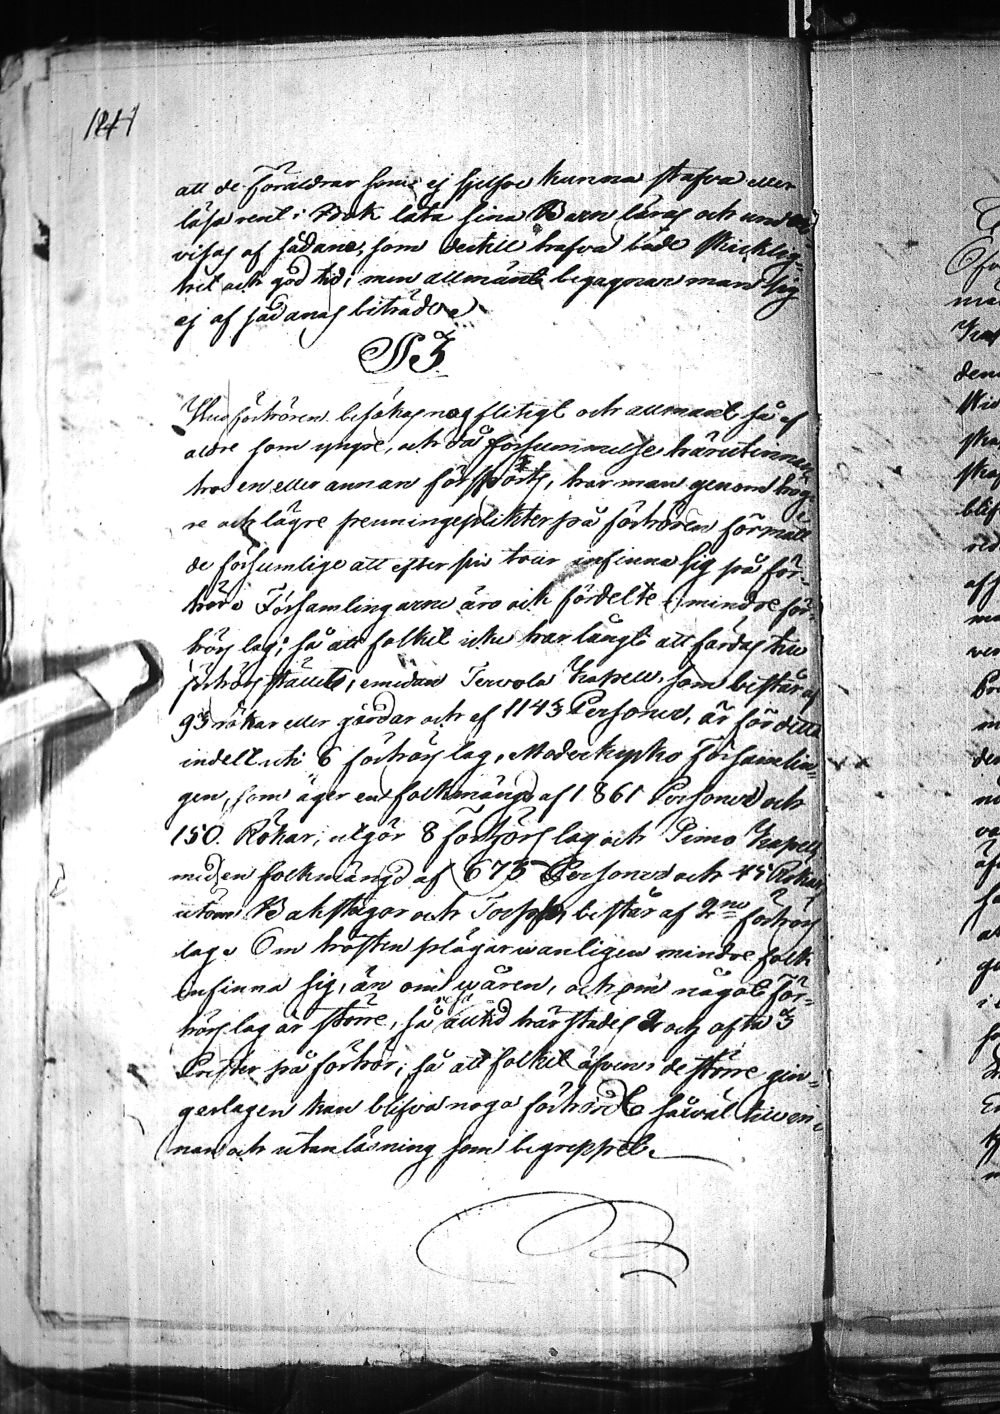 1841
att de Föräldrar som ej sjelfve kunna stafva eller
läsa rent i Bok låta sina Barn läras och under-
visas af sådane, som dertill hafva både skicklig-
het och god tid; men allmänt begagnar man sig
ej af sådanas biträde.
§ 3
Husförhören besökas nog flitigt och allmänt så af
äldre som yngre, och då försummelse härutinnan
hos en eller annan försports, har man genom hög-
re och lägre penningeplikter på förhören förmått
de försumlige att efter sin tour infinna sig på för-
hör. Församlingarne äro och fördelte i mindre för-
hörs lag; så att folket icke har långt att färdas till
förhörs stället, emedan Tervola Kapell, som består af
93 rökar eller gårdar och af 1143 Personer, är för detta
indelt uti 6 förhörs lag, Moderkyrko Församlin-
gen, som äger en folkmängd af 1861 Personer och
150. Rökar, utgör 8 förhörs lag och Simo Kapell
med en folkmängd af 675 Personer och 45 Rökar,
utom Bakstugor och Torp, består af 2ne förhörs
lag. Om hösten plägar wanligen mindre folk
infinna sig, än om wåren, och om något för-
hörs lag är större, så alltid härstädes 2 och ofta 3
Prester på förhör; så att folket äfven i de större gin-
gerlagen kan blifva noga förhördt såväl till in-
nan och utanläsning som begreppet.